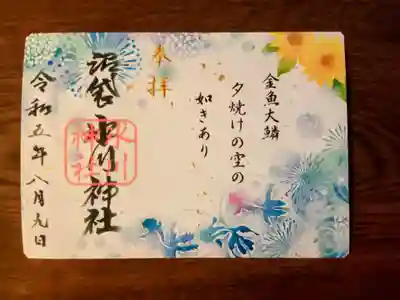 金魚大鱗
夕焼けの空の
如きあり
奉拝
沼袋 氷川神社
氷川
神社
令和五年八月九日